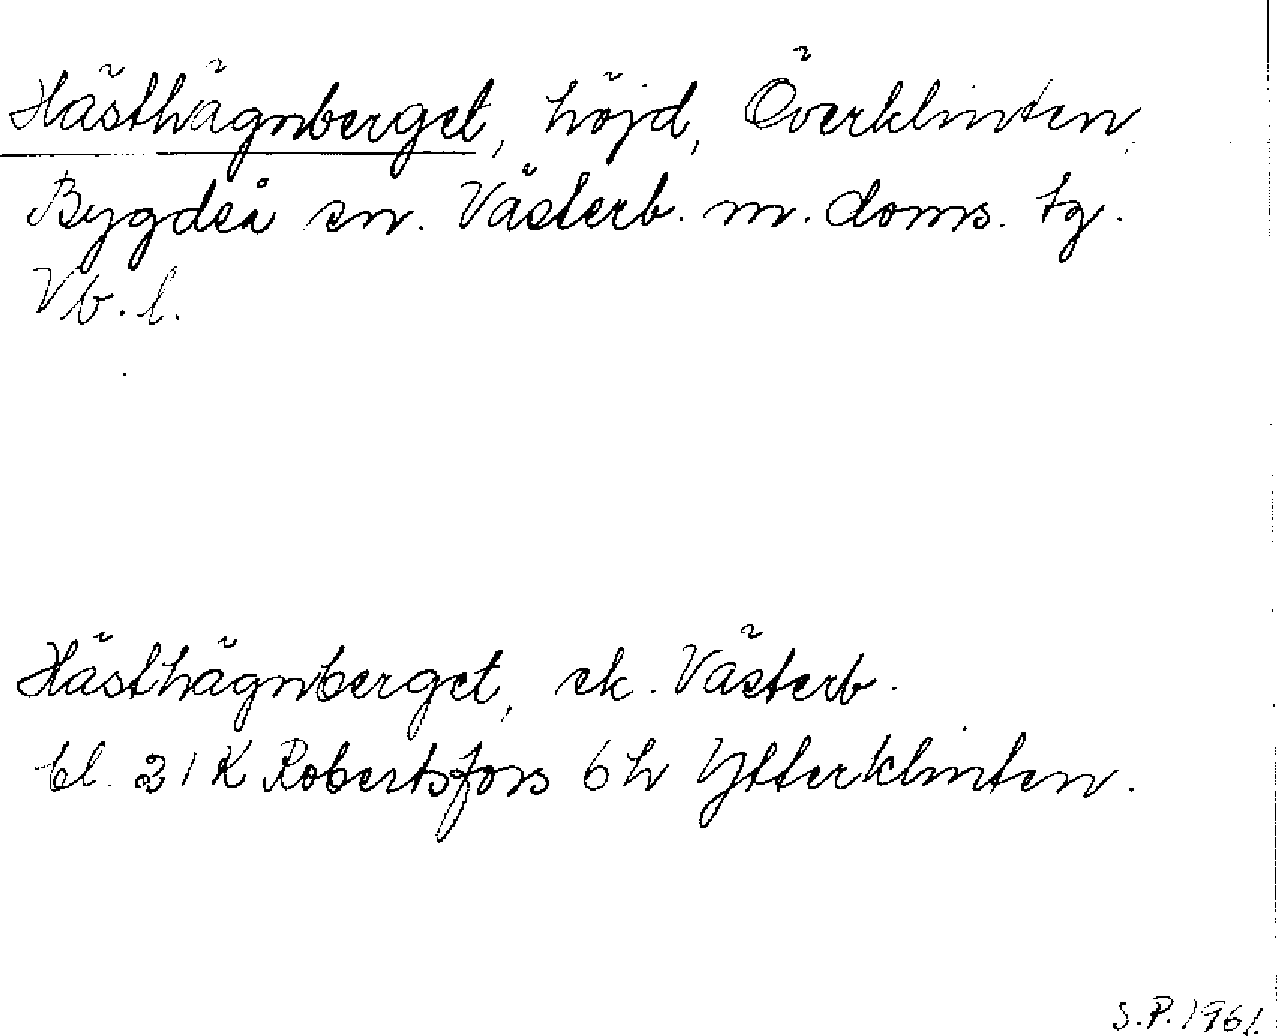 Hästhägnberget, höjd, Överklinten,
Bygdeå sn. Västerb. m. doms. tg.
Vb. l.
Hästhägnberget, ek. Västerb.
bl. 21 K Robertsfors 6 h Ytterklinten.
S.P. 1961.